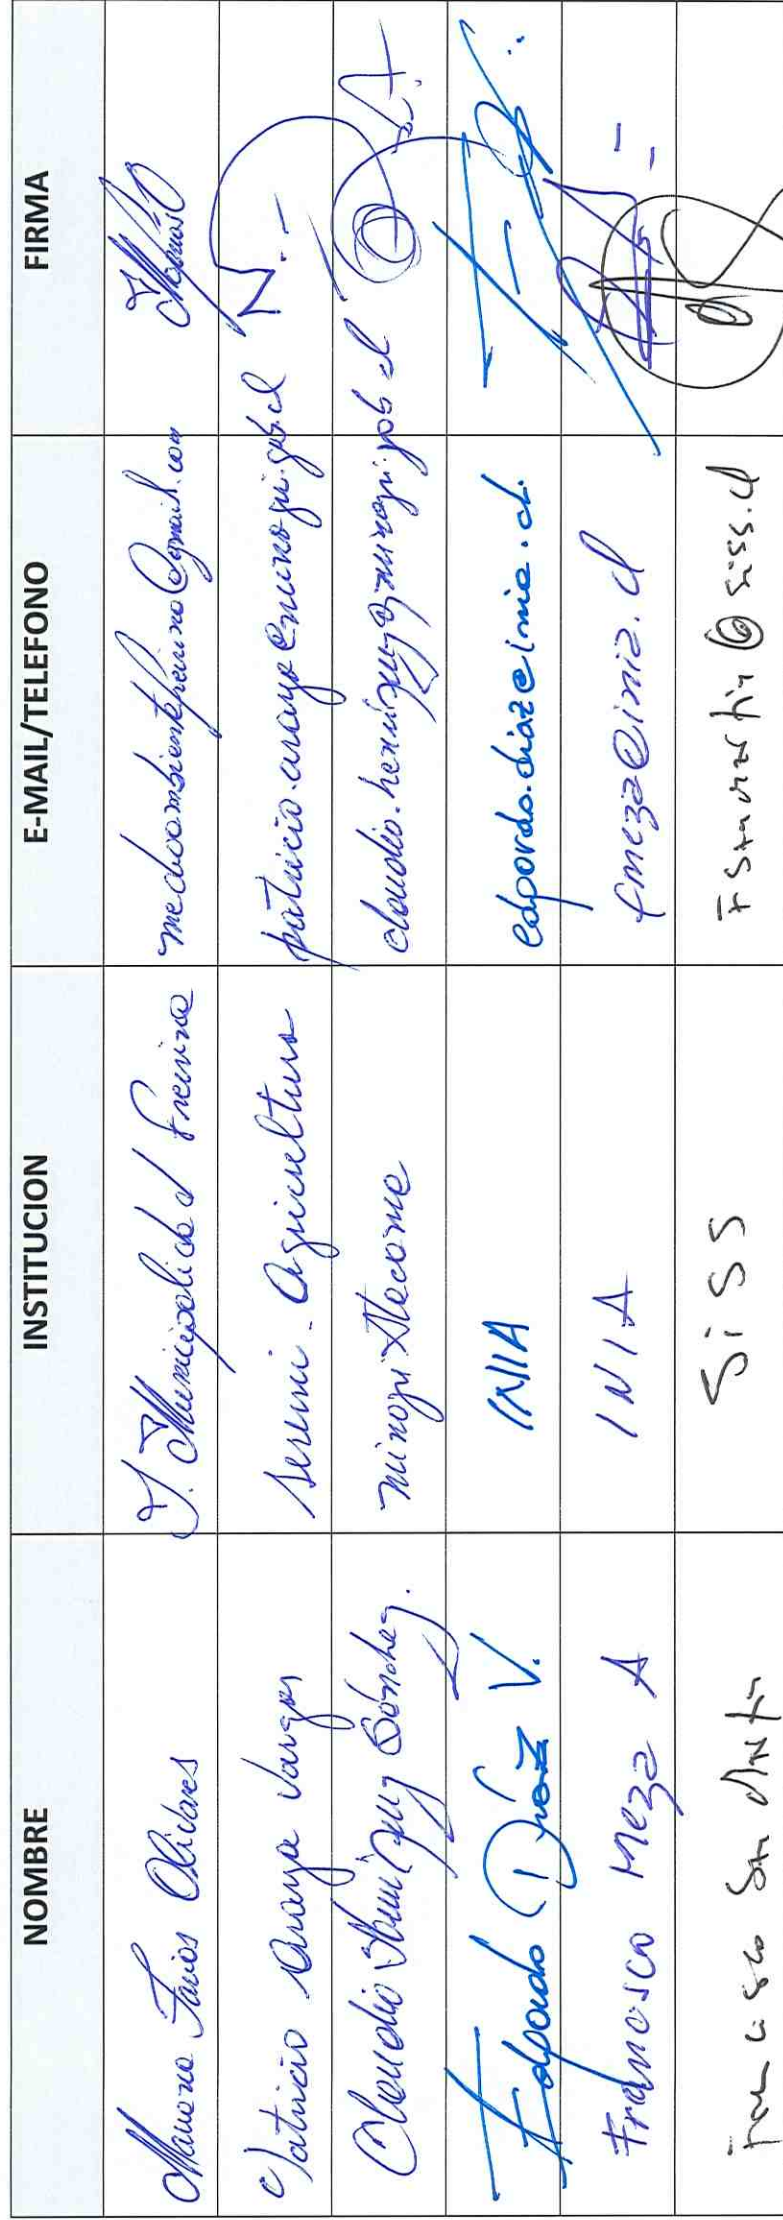 NOMBRE INSTITUCION E-MAIL/TELEFONO FIRMA
Farias Olivares I. Municipalidad Freirina medioambientefreirina@gmail.com
Patricio Araya Vargas Seremi. Agricultura patricio.araya@minagri.gob.cl
Claudio Henriquez Sánchez. minagri Atacama claudio.henriquez@minagri.gob.cl
Edgardo Díaz V. INIA edgardo.diaz@inia.cl.
Francisco Meza A INIA fmeza@inia.cl
Francisco San Martin SiSS FSanmartin@siss.cl